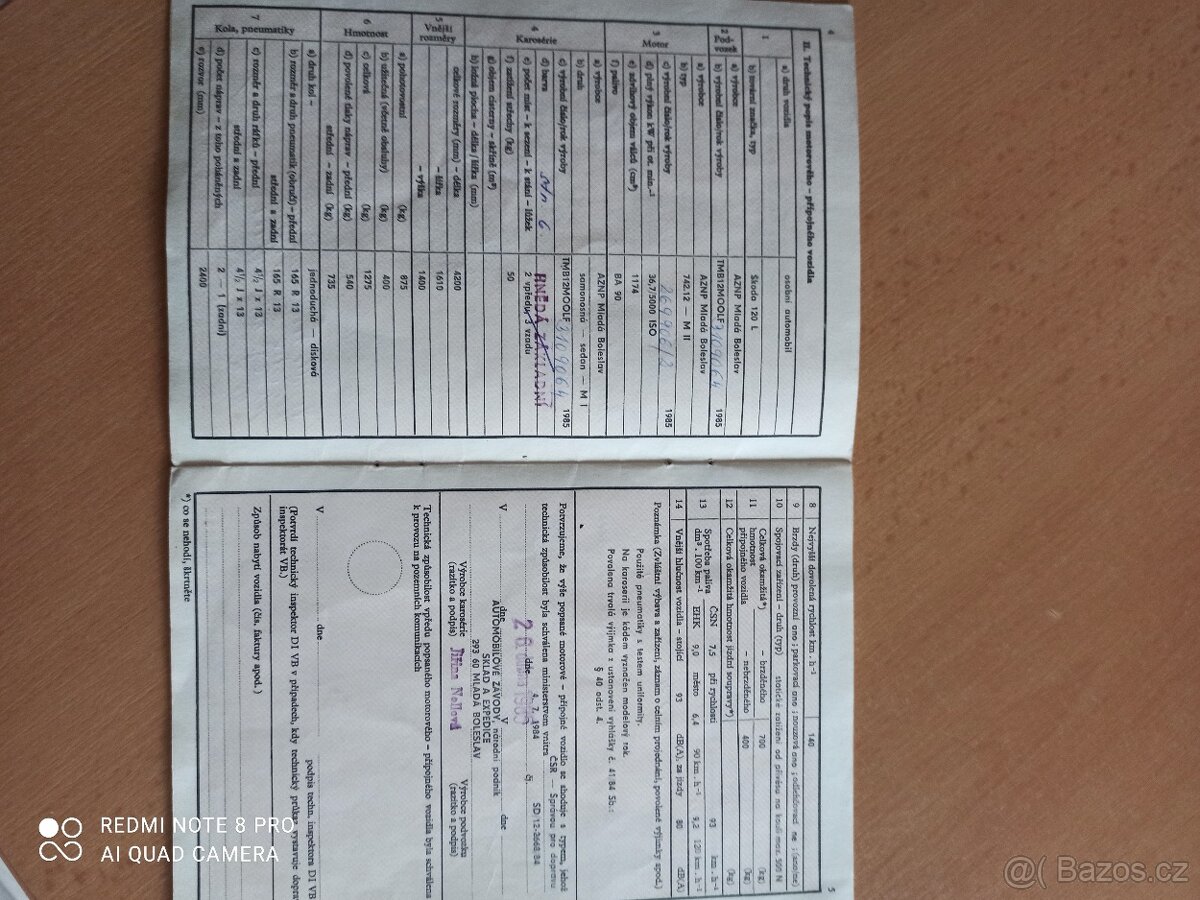 4
II. Technický popis motorového – přípojného vozidla
1
a) druh vozidla
osobní automobil
b) tovární značka, typ
Škoda 120 L
2 Podvozek
a) výrobce
AZNP Mladá Boleslav
b) výrobní číslo/rok výroby
TMB12MOOLF 3109064 1985
3 Motor
a) výrobce
AZNP Mladá Boleslav
b) typ
742.12 — M II
c) výrobní číslo/rok výroby
1985
d) plný výkon kW při ot. min.-¹
36,7/5000 ISO
e) zdvihový objem válců (cm³)
1174
f) palivo
BA 90
4 Karosérie
a) výrobce
AZNP Mladá Boleslav
b) druh
samonosná — sedan — M 1
c) výrobní číslo/rok výroby
TMB12MOOLF 3109064 1985
d) barva
HNĚDÁ ZÁKLADNÍ
e) počet míst – k sezení – k stání – lůžek
2 vpředu, 3 vzadu
f) zatížení střechy (kg)
50
g) objem cisterny – skříně (m³)
h) ložná plocha – délka / šířka (mm)
5 Vnější rozměry
celkové rozměry (mm) – délka
4200
– šířka
1610
– výška
1400
6 Hmotnost
a) pohotovostní (kg)
875
b) užitečná (včetně obsluhy) (kg)
400
c) celková (kg)
1275
d) povolené tlaky náprav – přední (kg)
540
střední – zadní (kg)
735
7 Kola, pneumatiky
a) druh kol –
jednoduchá — disková
b) rozměr a druh pneumatik (obručí) – přední
165 R 13
střední a zadní
165 R 13
c) rozměr a druh ráfků – přední
4½ J x 13
střední a zadní
4½ J x 13
d) počet náprav – z toho poháněných
2 — 1 (zadní)
e) rozvor (mm)
2400
5
8 Nejvyšší dovolená rychlost km . h-¹ 140
9 Brzdy (druh) provozní ano; parkovací ano; nouzová ano; odlehčovací ne
10 Spojovací zařízení – druh (typ) statické zatížení od přívěsu na kouli max. 500 N
11 Celková okamžitá*) hmotnost přípojného vozidla – brzděného 700 (kg)
– nebrzděného 400 (kg)
12 Celková okamžitá hmotnost jízdní soupravy*) (kg)
13 Spotřeba paliva dm³ . 100 km-¹ ČSN 7,5 při rychlosti 93 km . h-¹
EHK 9,0 město 6,4 90 km . h-¹ 9,2 120 km . h-¹
14 Vnější hlučnost vozidla – stojící 93 dB(A), za jízdy 80 dB(A)
Poznámka (Zvláštní výbava a zařízení, záznam o celním projednání, povolené výjimky apod.)
Použité pneumatiky s testem uniformity.
Na karoserii je kódem vyznačen modelový rok.
Povolena trvalá výjimka z ustanovení vyhlášky č. 41/84 Sb.:
§ 40 odst. 4.
Potvrzujeme, že výše popsané motorové – přípojné vozidlo se shoduje s typem, jehož
technická způsobilost byla schválena ministerstvem vnitra ČSR — Správou pro dopravu
dne 4. 7. 1984 čj. SD/12-2668/84
V dne V dne
AUTOMOBILOVÉ ZÁVODY, národní podnik
SKLAD A EXPEDICE
293 60 MLADÁ BOLESLAV
Výrobce karosérie
(razítko a podpis)
Výrobce podvozku
(razítko a podpis)
Technická způsobilost vpředu popsaného motorového – přípojného vozidla byla schválena
k provozu na pozemních komunikacích
V dne
podpis techn. inspektora DI VB
(Potvrdí technický inspektor DI VB v případech, kdy technický průkaz vystavuje dopr
inspektorát VB.)
Způsob nabytí vozidla (čís. faktury apod.)
*) co se nehodí, škrtněte
REDMI NOTE 8 PRO
AI QUAD CAMERA
@( Bazos.cz